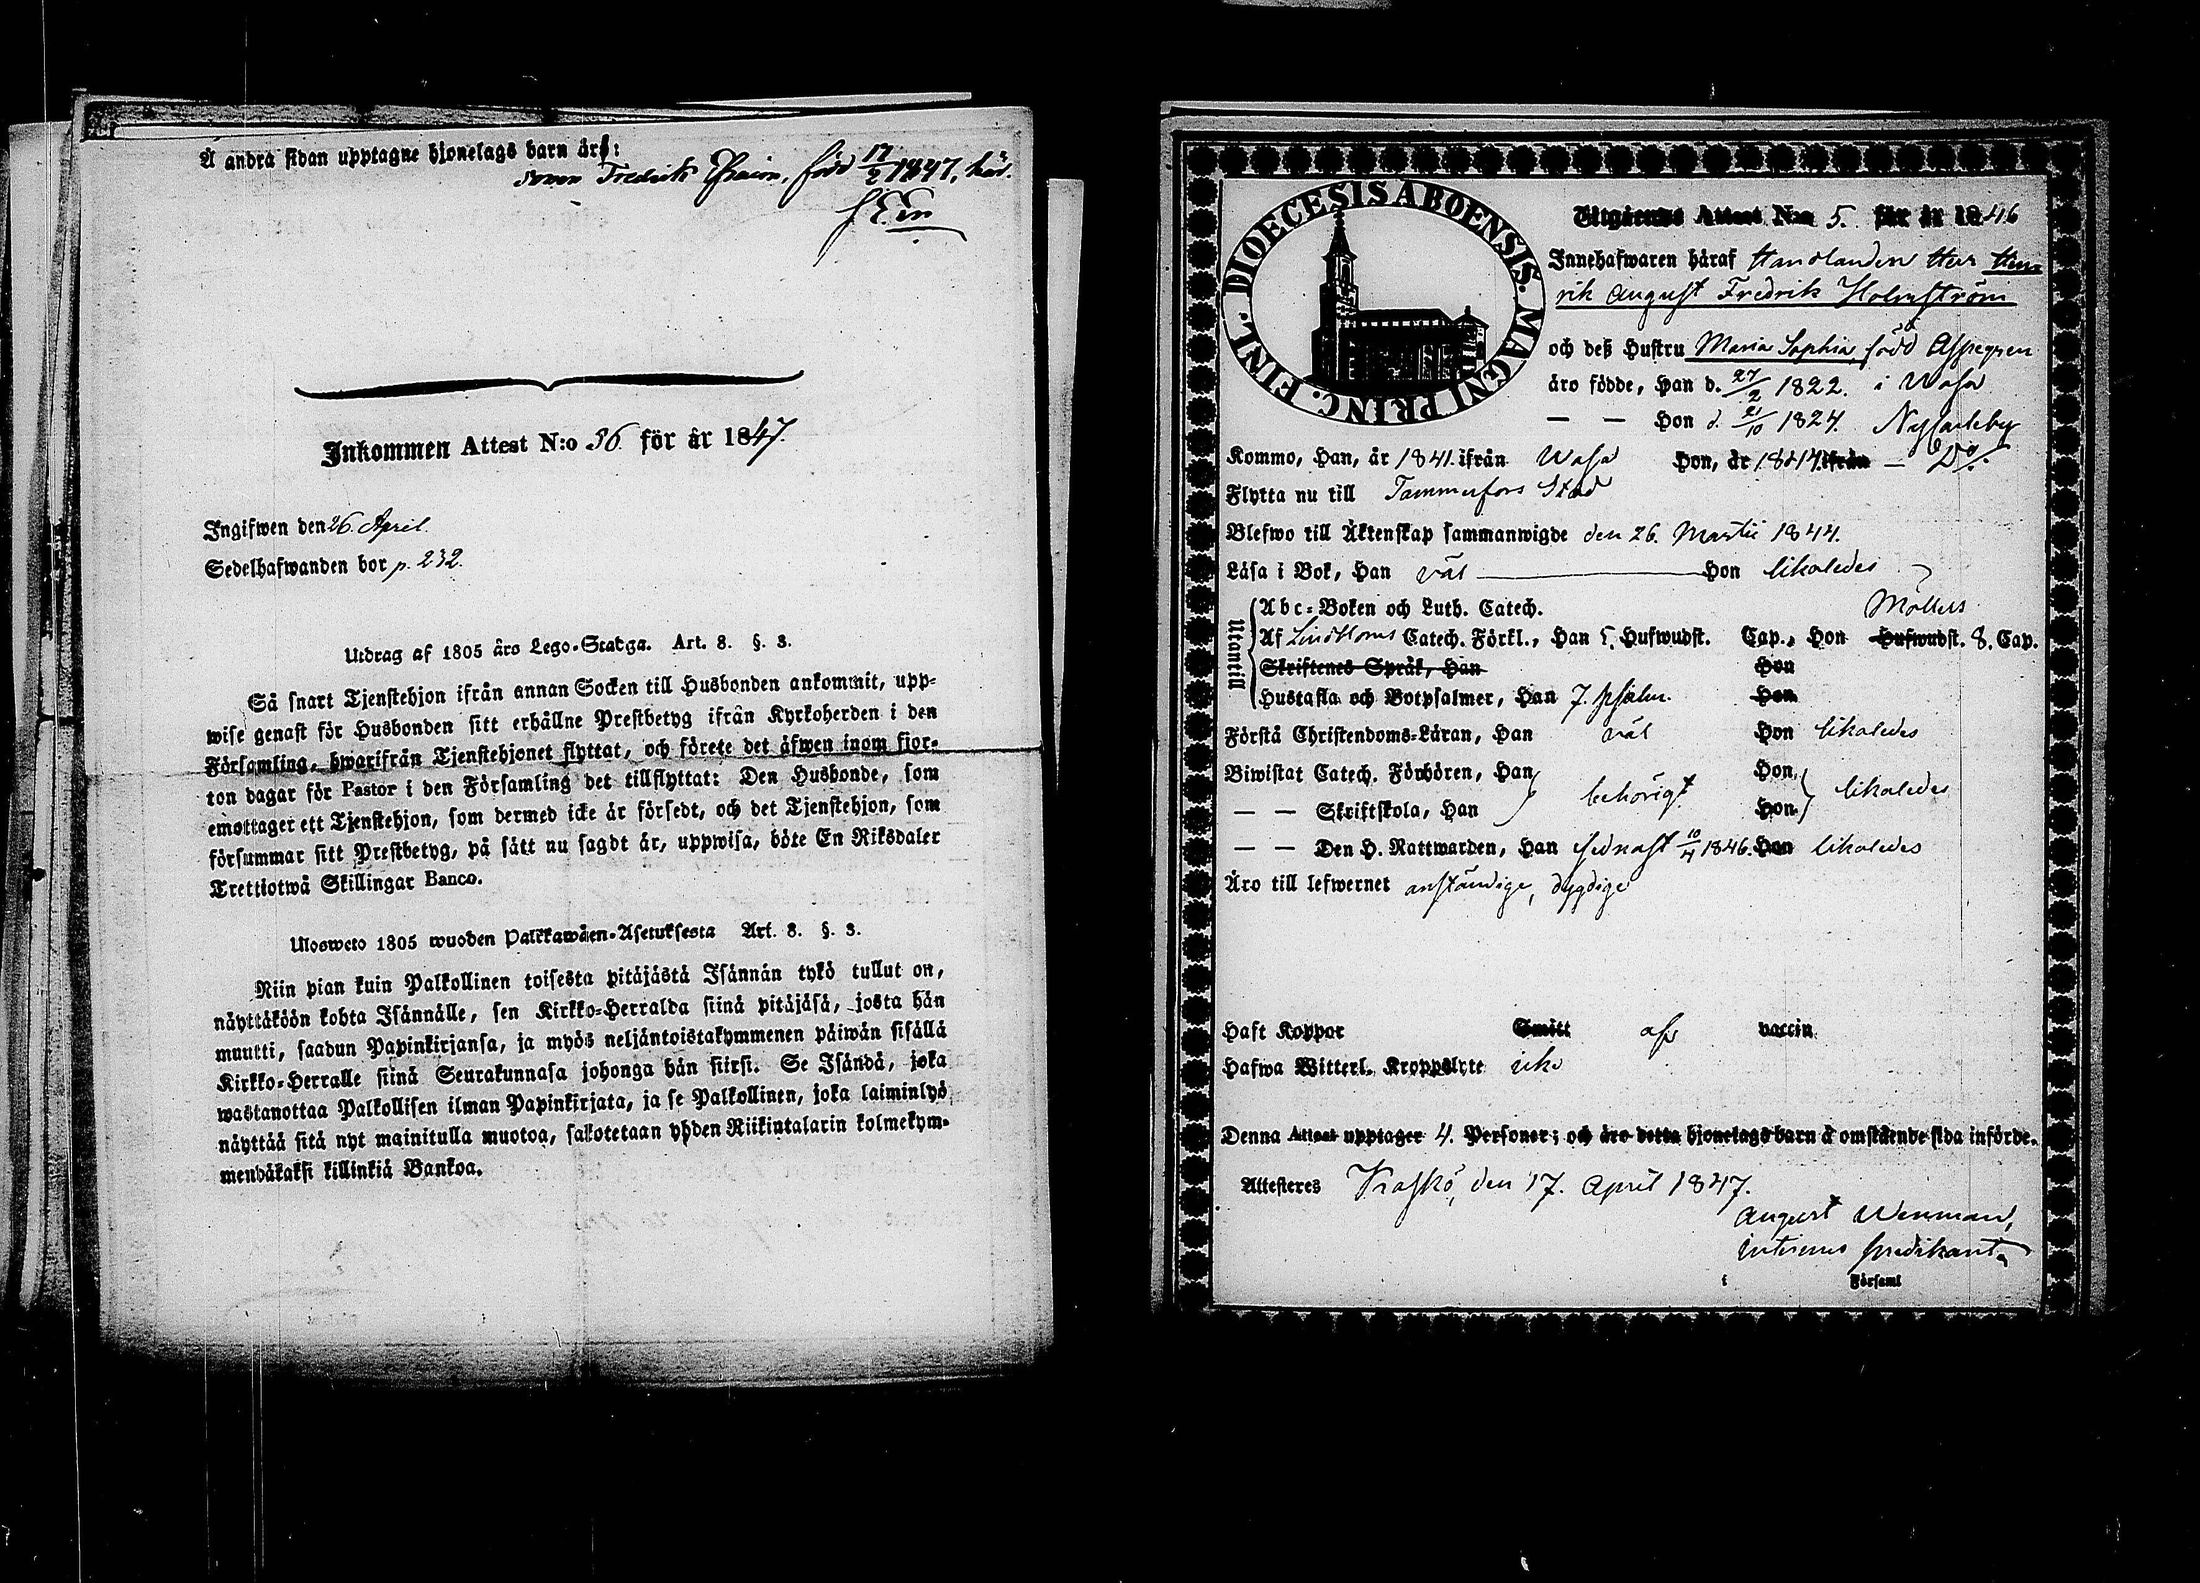 Å andra sidan upptagne hjonelags barn äro:
sonen Fredrik Efraim, född 17/2 1847, här.
Inkommen Attest N:o 36 för år 1847.
Ingifwen den 26. April.
Sedelhafwanden bor p. 232.
Utdrag af 1805 års Lego-Stadga. Art. 8. §. 3.
Så snart Tjenstehjon ifrån annan Socken till Husbonden ankommit, upp-
wise genast för Husbonden sitt erhållne Prestbetyg ifrån Kyrkoherden i den
Församling, hwarifrån Tjenstehjonet flyttat, och förete det äfwen inom fjor-
ton dagar för Pastor i den Församling det tillflyttat: Den Husbonde, som
emottager ett Tjenstehjon, som dermed icke är försedt, och det Tjenstehjon, som
försummar sitt Prestbetyg, på sätt nu sagdt är, uppwisa, böte En Riksdaler
Trettiotwå Skillingar Banco.
Ulosweto 1805 wuoden Palkkawäen-Asetuksesta Art. 8. §. 3.
Niin pian kuin Palkollinen toisesta pitäjästä Isännän tykö tullut on,
näyttäköön kohta Isännälle, sen Kirkko-Herralda siinä pitäjäsä, josta hän
muutti, saadun Papinkirjansa, ja myös neljäntoistakymmenen päiwän sisällä
Kirkko-Herralle siinä Seurakunnasa johonga hän siirsi. Se Isändä, joka
wastanottaa Palkollisen ilman Papinkirjata, ja se Palkollinen, joka laiminlyö
näyttää sitä nyt mainitulla muotoa, sakotetaan yhden Riikintalarin kolmekym-
mendäkaksi killinkiä Bankoa.
DIOECESIS ABOENSIS. MAGNI PRINC. FINL.
Utgående Attest N:o 5. för år 1846
Innehafwaren häraf Handlanden Herr Hen
rik August Fredrik Holmström
och deß Hustru Maria Sophia född Aspegren
äro födde, Han d. 27/2 1822. i Wasa
— — Hon d. 21/10 1824. Nykarleby
Kommo, Han, år 1841. ifrån Wasa Hon, år 1844. ifrån — Do.
Flytta nu till Tammerfors Stad
Blefwo till Äktenskap sammanwigde den 26. Martii 1844.
Läsa i Bok, Han väl Hon likaledes
Utantill
Abc-Boken och Luth. Catech. Möllers
Af Lindbloms Catech. Förkl., Han 5. Hufwudst. Cap., Hon Hufwudst. 8. Cap.
Skriftenes Språk, Han Hon
Hustafla och Botpsalmer, Han 7. psalm. Hon
Förstå Christendoms-Läran, Han väl Hon likaledes
Biwistat Catech. Förhören, Han Hon
behörigt likaledes
— — Skriftskola, Han Hon
— — Den H. Nattwarden, Han sednast 10/4 1846. Hon likaledes
Äro till lefwernet anständige, dygdige
Haft Koppor Smitt vaccin
Hafwa Witterl. Kroppslyte icke
Denna Attest upptager 4. Personer; och äro detta hjonelags barn å omstående sida införde.
Attesteres Kaskö, den 17. April 1847.
August Wenman,
interims predikant
i Församl